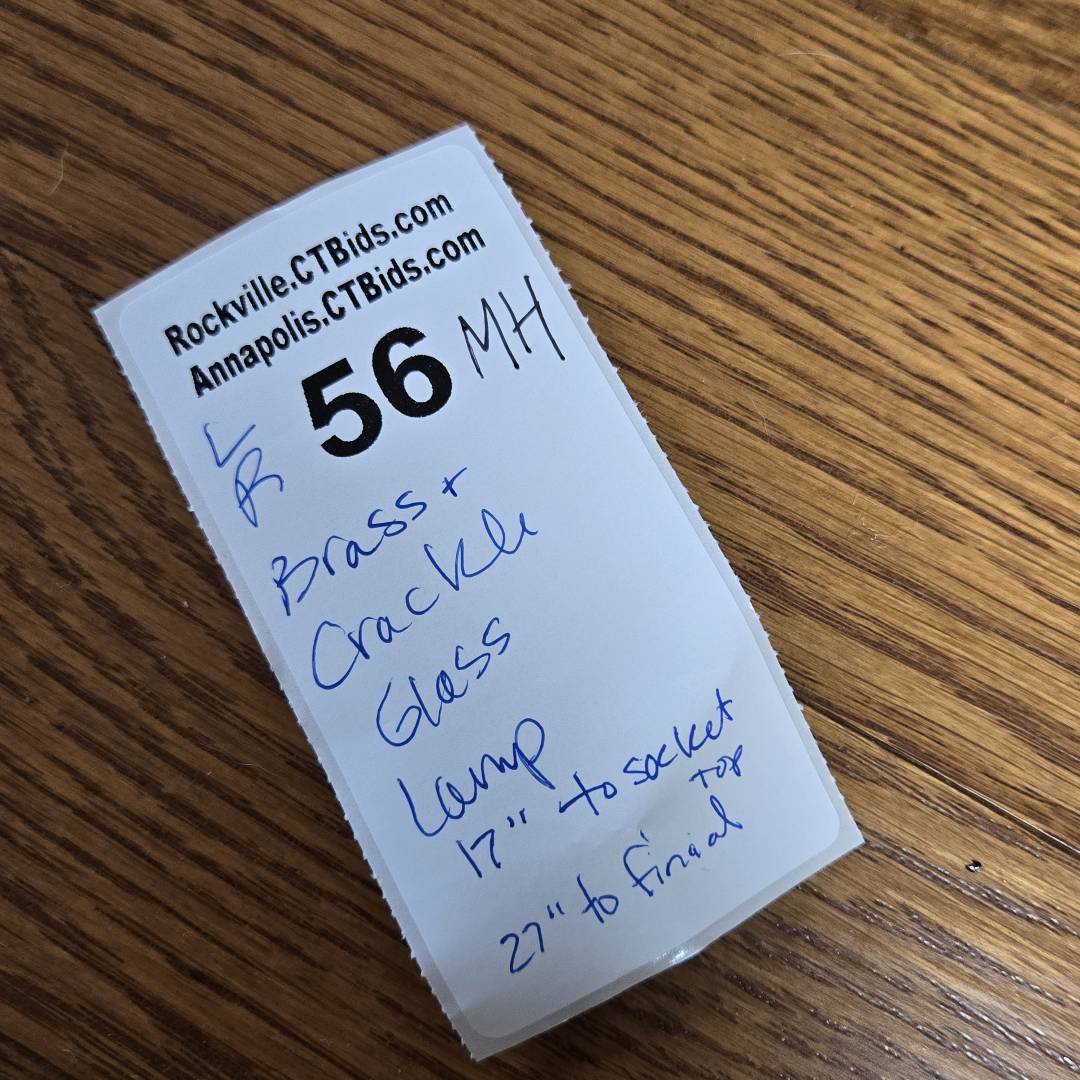 Rockville.CTBids.com
Annapolis.CTBids.com
56 MH
LR
Brass +
Crackle
Glass
Lamp
17" to socket
top
27" to finial